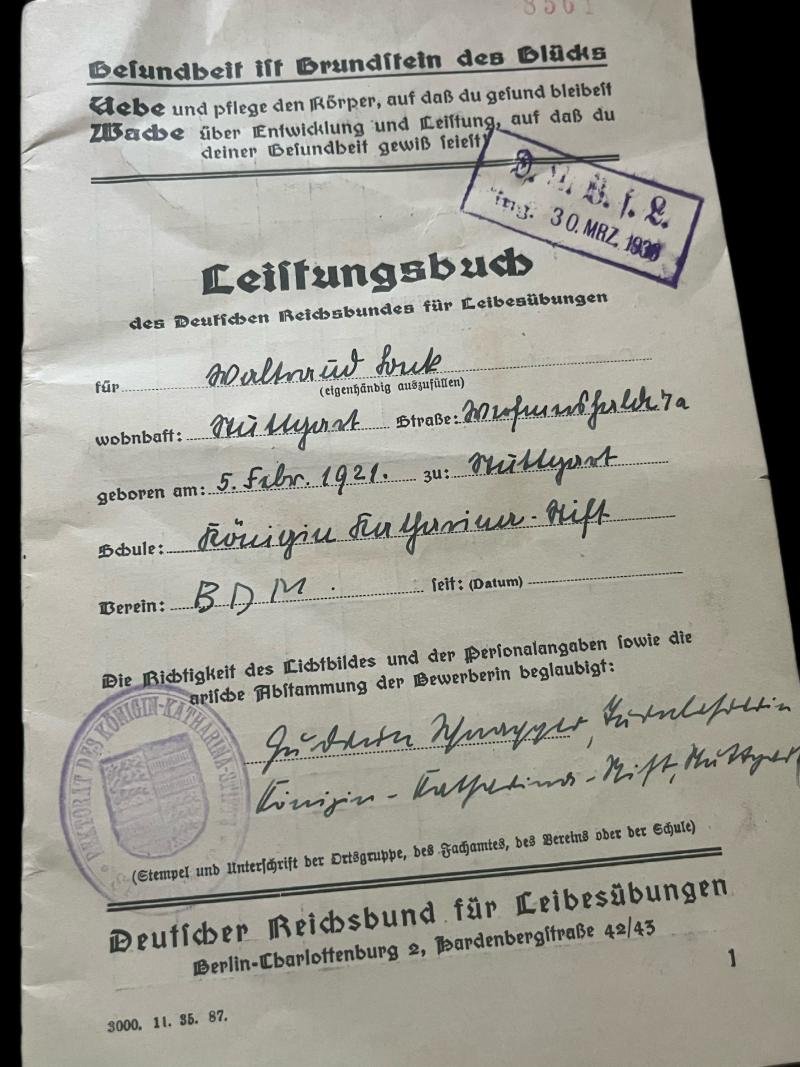 8561
Gesundheit ist Grundstein des Glücks
Uebe und pflege den Körper, auf daß du gesund bleibest
Wache über Entwicklung und Leistung, auf daß du
deiner Gesundheit gewiß seiest
30. MRZ. 193
Leistungsbuch
des Deutschen Reichsbundes für Leibesübungen
für Waltraud
(eigenhändig auszufüllen)
wohnhaft: Stuttgart Straße: 7a
geboren am: 5. Febr. 1921. zu: Stuttgart
Schule: Königin Katharina-Stift
Verein: BDM. seit: (Datum)
Die Richtigkeit des Lichtbildes und der Personalangaben sowie die
arische Abstammung der Bewerberin beglaubigt:
Turnlehrerin
Königin-Katharina-Stift, Stuttgart
REKTORAT DES KÖNIGIN-KATHARINA-STIFT
(Stempel und Unterschrift der Ortsgruppe, des Fachamtes, des Vereins oder der Schule)
Deutscher Reichsbund für Leibesübungen
Berlin-Charlottenburg 2, Hardenbergstraße 42/43
1
3000. 11. 35. 87.